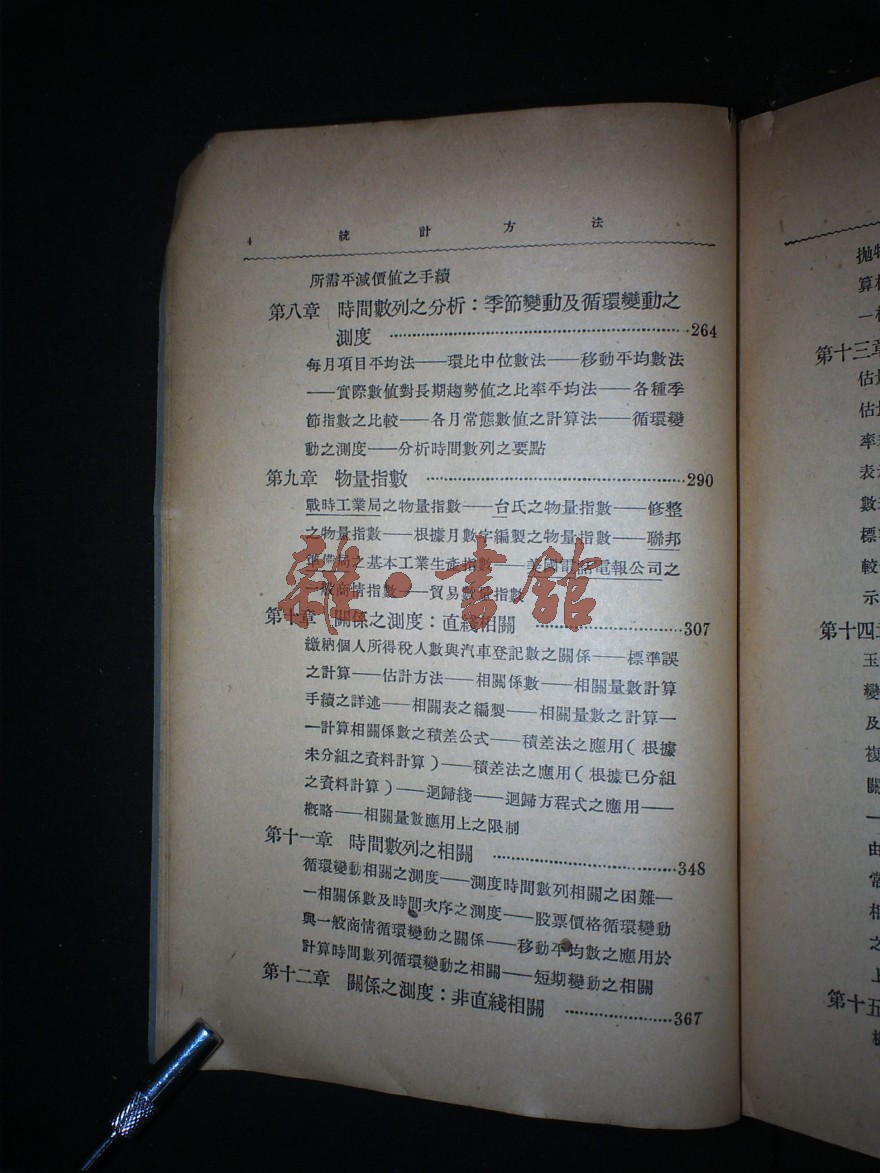 4 統計方法
所需平減價值之手續
第八章 時間數列之分析：季節變動及循環變動之
測度 ……264
每月項目平均法——環比中位數法——移動平均數法
——實際數值對長期趨勢值之比率平均法——各種季
節指數之比較——各月常態數值之計算法——循環變
動之測度——分析時間數列之要點
第九章 物量指數 ……290
戰時工業局之物量指數——台氏之物量指數——修整
之物量指數——根據月數字編製之物量指數——聯邦
準備局之基本工業生產指數——美國電話電報公司之
一般商情指數——貿易數量指數
第十章 關係之測度：直綫相關 ……307
繳納個人所得稅人數與汽車登記數之關係——標準誤
之計算——估計方法——相關係數——相關量數計算
手續之詳述——相關表之編製——相關量數之計算—
—計算相關係數之積差公式——積差法之應用（根據
未分組之資料計算）——積差法之應用（根據已分組
之資料計算）——迴歸綫——迴歸方程式之應用——
概略——相關量數應用上之限制
第十一章 時間數列之相關 ……348
循環變動相關之測度——測度時間數列相關之困難—
—相關係數及時間次序之測度——股票價格循環變動
與一般商情循環變動之關係——移動平均數之應用於
計算時間數列循環變動之相關——短期變動之相關
第十二章 關係之測度：非直綫相關 ……367
雜·書館
算
第十三章
估
估
率
表
數
標
較
示
第十四
玉
變
及
複
關
由
常
相
之
上
第十五